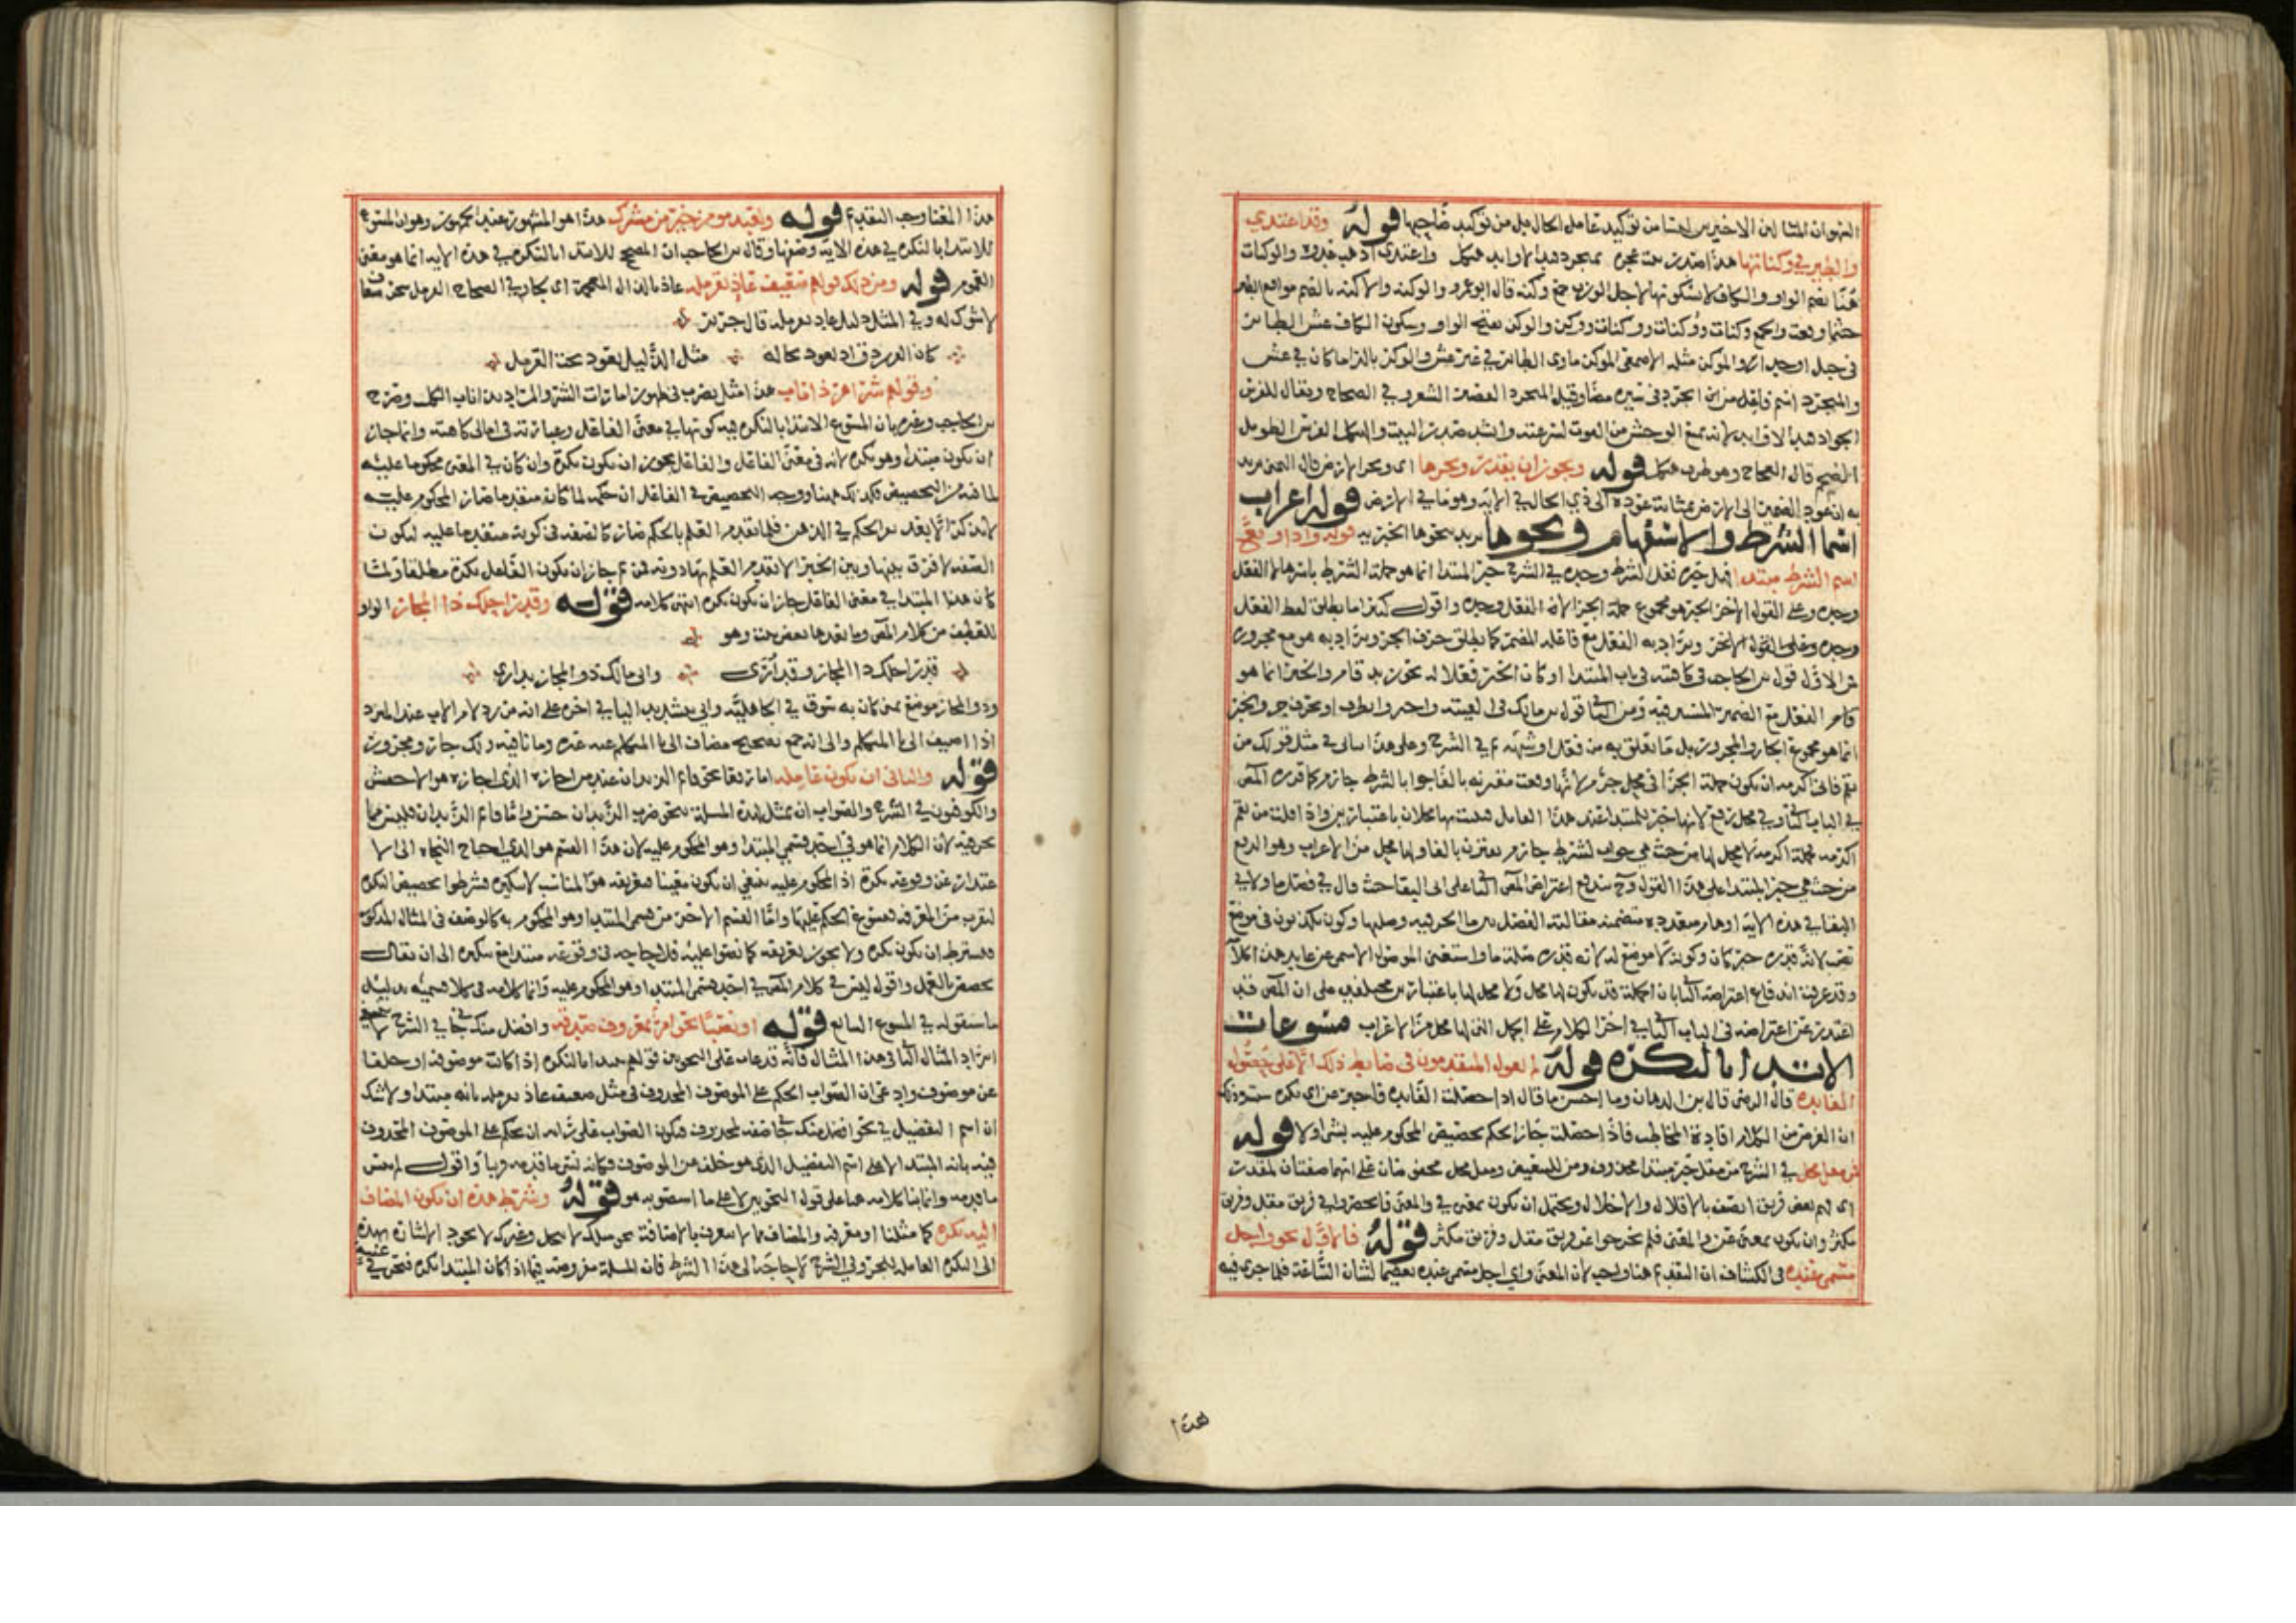 المثالين الاخيرين ليسا من توكيد عامل الحال بل من توكيد صاحبها قوله وقد اغتدي
والطير في وكناتها هذا صدر بيت عجزه بمنجرد قيد الاوابد هيكل واغتدي اذهب غدوة والوكنات
هنا بضم الواو والكاف لاجل الوزن جمع وكنة قال ابو عمرو الوكنة والاكنة بالضم مواقع الطير
حيثما وقعت والجمع وكنات ووكنات ووكنات ووكن والوكن بفتح الواو وسكون الكاف عش الطائر
في جبل او جدار والموكن مثله الاصمعي الوكن ماوى الطائر في غير عش والوكر بالراء ما كان في عش
والمنجرد اسم فاعل من انجرد في سيره مضى وقيل المنجرد القصير الشعر وفي الصحاح ويقال للفرس
الجواد قيد الاوابد لانه يمنع الوحش من الفوت لسرعته والهيكل الفرس الطويل
الضخم قوله ويجوز ان يقدر ويجرها
به ان عود الضمير الى الارض بمثابة عوده الى ذي الحال في الآية وهو ما في الارض قوله اعراب
اسما الشرط والاستفهام ونحوها يريد بنحوها الخبرية قوله واذا وقع
اسم الشرط مبتدا قيل خبره فعل الشرط وحده في الشرح خبر المبتدا انما هو جملة الشرط باسرها لا الفعل
وحده وعلى القول الاخر الخبر هو مجموع جملة الجزا لا الفعل وحده واقول كثيرا ما يطلق لفظ الفعل
وحده ويراد به الفعل مع فاعله المضمر كما يطلق حرف الجر ويراد به هو مع مجروره
من الاول قول ابن الحاجب في كافيته في باب المبتدا او كان الخبر فعلا له نحو زيد قام والخبر انما هو
قام الفعل مع الضمير المستتر فيه ومن الثاني قول ابن مالك في الفيته واخبروا بظرف او بحرف جر والخبر
انما هو مجموع الجار والمجرور بل ما تعلق به من فعل او شبهه في الشرح وعلى هذا في مثل قولك من
يقم فاني اكرمه ان يكون جملة الجزا في محل جزم لانها وقعت مقترنة بالفا جوابا لشرط جازم كما قرره المص
في الباب الثاني وفي محل رفع لانها خبر للمبتدا عند هذا القايل فيثبت لها محلان باعتبارين واذا قلت من يقم
اكرمه فجملة اكرمه لا محل لها من حيث هي جواب لشرط جازم لم يقترن بالفا ولها محل من الاعراب وهو الرفع
من حيث هي خبر المبتدا على هذا القول وح يندفع اعتراض المص الثاني على ابي البقا حيث قال في فصل ما
نصب لانه قدره خبر كان وكونه لا موضع له لانه قدره صلة ما واستغنى الموصول الاسمي عن عايد هذا كلامه
وقد عرفت اندفاع اعتراضه الثاني بان الجملة قد يكون لها محل ولا محل لها باعتبارين مختلفين على ان المص قد
اعتذر عن اعتراضه في الباب الثاني في اخر الكلام على الجمل التي لها محل من الاعراب مسوغات
الابتدا بالنكرة قوله لم يعول المتقدمون في ضابط ذلك الا على حصول
الفايدة قال الرضي قال ابن الدهان وما احسن ما قال اذا حصلت الفايدة فاخبر عن اي نكرة شئت وذلك
ان الغرض من الكلام افادة المخاطب فاذا حصلت جاز الحكم تخصيص المحكوم عليه بشئ او لا قوله
فمن مقل مخل في الشرح من مقل خبر مبتدا محذوف ومن للتبعيض ومقل مخل مخفوضان على انهما صفتان لمقدر
اي هم بعض فريق اتصف بالاقلال والاخلال ويحتمل ان يكون بمعنى في والمعنى فانحصروا في فريق مقل وفريق
مكثر وان يكون بمعنى عن والمعنى فلم يخرجوا عن فريق مقل وفريق مكثر قوله فالاول نحو واجل
مسمى عنده في الكشاف ان التقديم هنا واجب لان المعنى واي اجل مسمى عنده تعظيما لشان الساعة فلما جرى فيه
هذا
هذا المعنى وجب التقديم قوله ولعبد مومن خير من مشرك هذا هو المشهور عند الجمهور وهو ان المسوغ
للابتدا بالنكرة في هذه الآية وصفها وقال ابن الحاجب ان المصحح للابتدا بالنكرة في هذه الآية انما هو معنى
العموم قوله ومن ذلك قولهم ضعيف عاذ بقرملة عاذ بالذال المعجمة اي لجا وفي الصحاح القرمل شجر ضعاف
لا شوك له وفي المثل ذليل عاذ بقرملة قال جرير
كان الفرزدق اذ يعوذ بخاله مثل الذليل يعوذ تحت القرمل
وقولهم شر اهر ذا ناب هذا مثل يضرب في ظهور امارات الشر والمراد بذا ناب الكلب وصرح
ابن الحاجب وغيره بان المسوغ للابتدا بالنكرة فيه كونها في معنى الفاعل وعبارته في امالي كافيته وانما جاز
ان يكون مبتدا وهو نكرة لانه في معنى الفاعل والفاعل يجوز ان يكون نكرة وان كان في المعنى محكوما عليه
لما فيه من التخصيص فكذلك هنا ووجه التخصيص في الفاعل ان حكمه لما كان متقدما صار المحكوم عليه
لا يذكر الا بعد تقرر الحكم في الذهن فلما تقدم العلم بالحكم صار كالصفة في كونه متقدما عليه لتكون
الصفة لا فرق بينها وبين الخبر الا تقدم العلم بها دونه فمن ثم جاز ان يكون الفاعل نكرة مطلقا ولما
كان هذا المبتدا في معنى الفاعل جاز ان يكون نكرة انتهى كلامه قوله وقدر احلك ذا المجاز الواو
للعطف من كلام المص وما بعدها بعض بيت وهو
قدر احلك ذا المجاز وقد ارى وابي مالك ذو المجاز بدار
وذو المجاز موضع بمنى كان به سوق في الجاهلية وابي بتشديد اليا في اخره على انه من رد لام الاب عند المبرد
اذا اضيف الى يا المتكلم وعلى انه جمع تصحيح مضاف الى يا المتكلم عند غيره وما نافيه ولك جار ومجرور
قوله والثاني ان يكون عاملة اما رفعا نحو قايم الزيدان عند من اجازه الذي اجازه هو الاخفش
والكوفيون في الشرح والصواب ان يمثل لهذه المسلة بنحو ضرب الزيدان حسن واما قايم الزيدان فليس مما
نحن فيه لان الكلام انما هو في احد قسمي المبتدا وهو المحكوم عليه لان هذا القسم هو الذي احتاج النحاة الى الا
عتذار عن وقوعه نكرة اذ المحكوم عليه ينبغي ان يكون معينا فتعريفه هو المناسب لا تنكيره فشرطوا تخصيص النكرة
لتقرب من المعرفة فيسوغ الحكم عليها واما القسم الاخر من قسمي المبتدا وهو المحكوم به كالوصف في المثال المذكور
فيشترط ان يكون نكرة ولا يجوز تعريفه كما نصوا عليه فلا حاجة في وقوعه مبتدا مع تنكيره الى ان يقال
تخصص بالعمل واقول ليس في كلام المص في احد قسمي المبتدا وهو المحكوم عليه وانما كلامه في كلا قسميه بدليل
ما سيقوله في المسوغ السابع قوله او نصبا نحو امر بمعروف صدقة وافضل منك جاني في الشرح
ايراد المثال الثاني في هذا المثال فانه قد عاب على النحويين قولهم يبتدا بالنكرة اذا كانت موصوفة او خلفا
عن موصوف وادعى ان الصواب الحكم على الموصوف المحذوف في مثل ضعيف عاذ بقرملة بانه مبتدا ولا شك
ان اسم التفضيل في نحو افضل منك جا صفة لمحذوف فيكون الصواب على رايه ان يحكم على الموصوف المحذوف
فيه بانه المبتدا لا على اسم التفضيل الذي هو خلف عن الموصوف فكانه نسي ما قدمه قريبا واقول لم ينس
ما قدمه وانما بنا كلامه هنا على قول النحويين لا على ما استصوبه هو قوله وشرط هذه ان يكون المضاف
اليه نكرة كما مثلنا او معرفة والمضاف مما لا يتعرف بالاضافة نحو مثلك لا يبخل وغيرك لا يجود الاشارة بهذه
الى النكرة العاملة للجر وفي الشرح لا حاجة الى هذا الشرط فان المسلة مفروضة فيما اذا كان المبتدا نكرة